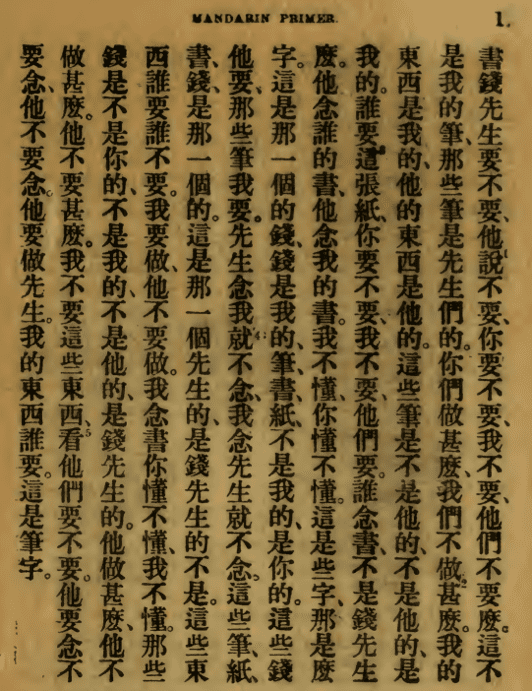 MANDARIN PRIMER.
1.
書錢先生要不要、他說¹不要、你要不要、我不要、他們不要麼。這不
是我的筆、那些筆是先生們的。你們做甚麼、我們不做²甚麼。我的
東西是我的、他的東西是他的。這些筆是不是他的、不是他的、是
我的。誰要這張紙、你要不要、我不要、他們要。誰念書、不是錢先生
麼。他念誰的書、他念我的書。我不懂、你懂不懂。這是些字、那是麼
字。這是那一個的錢、錢是我的、筆、書、紙、不是我的、是你的。這些錢
他要、那些筆我要。先生念我就⁴不念、我念先生就不念。這些筆、紙、
書、錢、是那一個的。這是那一個先生的、是錢先生的不是。這些東
西誰要誰不要。我要做、他不要做。我念書你懂不懂、我不懂。那些
錢是不是你的、不是我的、不是他的、是錢先生的。他做甚麼、他不
做甚麼。他不要甚麼。我不要這些東西、⁵看他們要不要。他要念不
要念、他不要念。他要做先生。我的東西誰要。這是筆字。